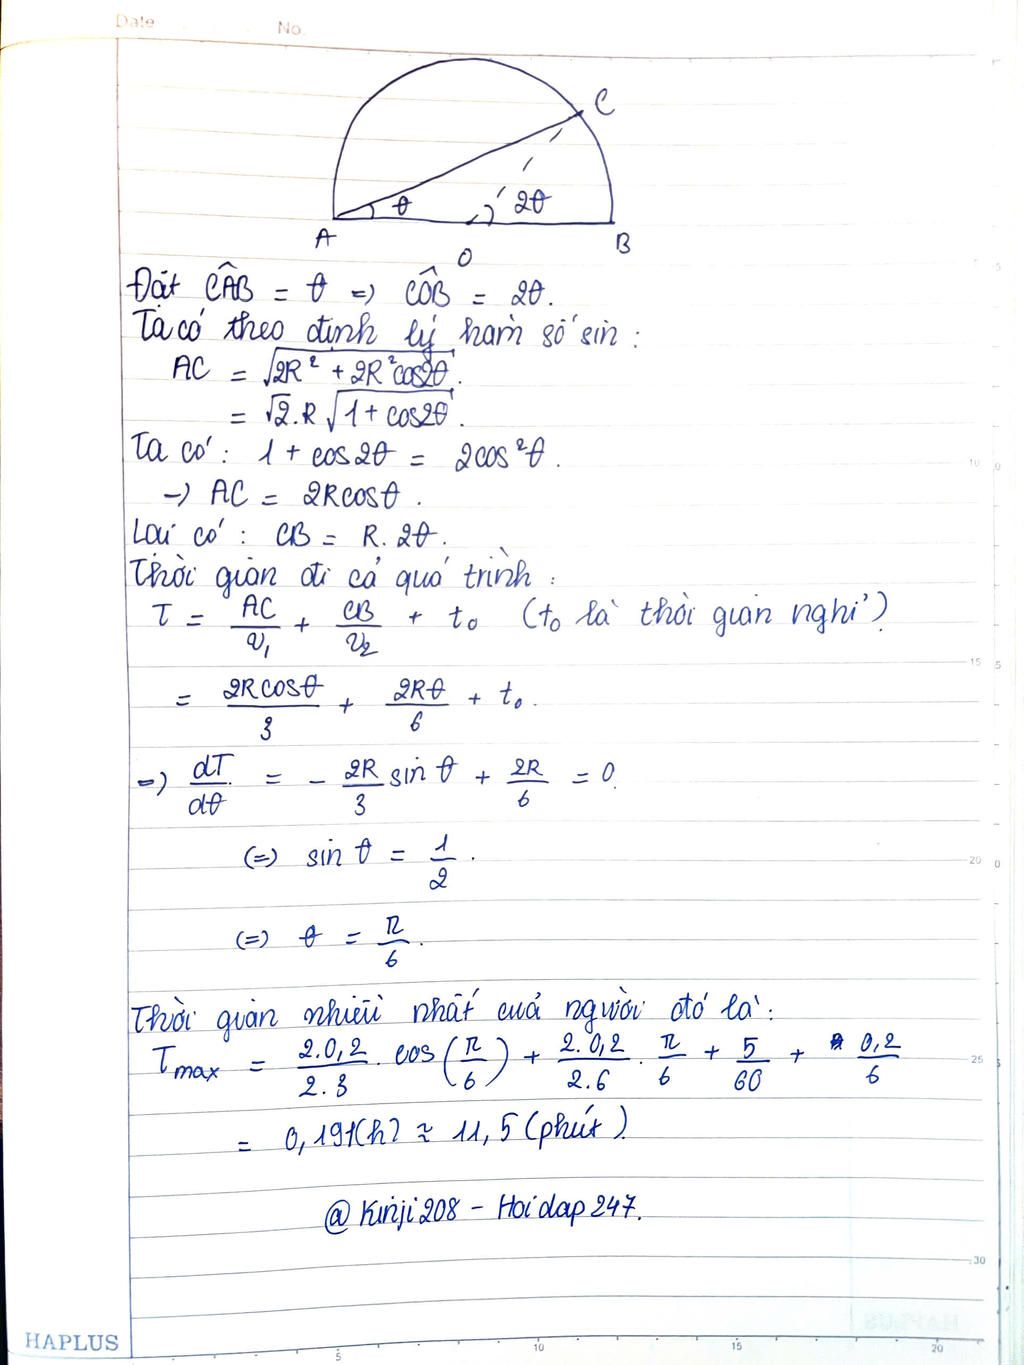 Date No.
C
θ 2θ
A O B
Đặt CÂB = θ => CÔB = 2θ.
Ta có theo định lý hàm số sin :
AC = √(2R² + 2R²cos2θ).
= √2.R √(1 + cos2θ).
Ta có : 1 + cos2θ = 2cos²θ.
-> AC = 2Rcosθ.
Lại có : CB = R.2θ.
Thời gian đi cả quá trình :
T = AC/v₁ + CB/v₂ + t₀ (t₀ là thời gian nghỉ)
= 2Rcosθ/3 + 2Rθ/6 + t₀.
=> dT/dθ = - 2R/3 sin θ + 2R/6 = 0
(=) sin θ = 1/2.
(=) θ = π/6.
Thời gian nhiều nhất của người đó là :
Tmax = 2.0,2/2.3 . cos(π/6) + 2.0,2/2.6 . π/6 + 5/60 + 0,2/6
= 0,191(h) ≈ 11,5 (phút).
@Kinji208 - Hoidap247.
HAPLUS
5 10 15 20
10
15
20
25
30